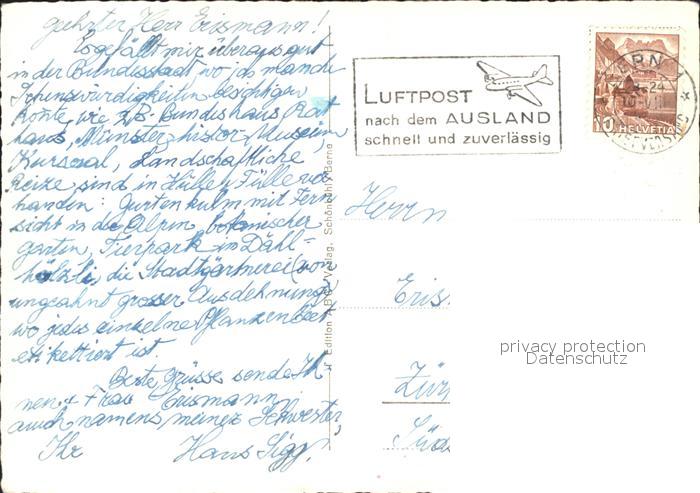 geehrter Herr Erismann!
Es gefällt mir überaus gut
in der Bundesstadt wo ich manche
Sehenswürdigkeiten besichtigen
konte, wie z.B. Bundeshaus Rat
haus, Münster, histor. Museum
Kursaal, Landschaftliche
Reize sind in Hülle & Fülle vor
handen: Gurtenkulm mit Fern
sicht in die Alpen, botanischer
garten, Tierpark im Dähl-
hölzli, die Stadtgärtnerei (von
ungeahnt grosser Ausdehnung)
wo jedes einzelne Pflanzenbeet
etikettiert ist.
Beste Grüsse sende Ih
nen & Frau Erismann
auch namens meiner Schwester,
Ihr Hans Sigg.
Edition Verlag, Schönbühl-Berne
LUFTPOST
nach dem AUSLAND
schnell und zuverlässig
BERN 1
10 HELVETIA
Herrn
Eris
Zür
Süd
privacy protection
Datenschutz